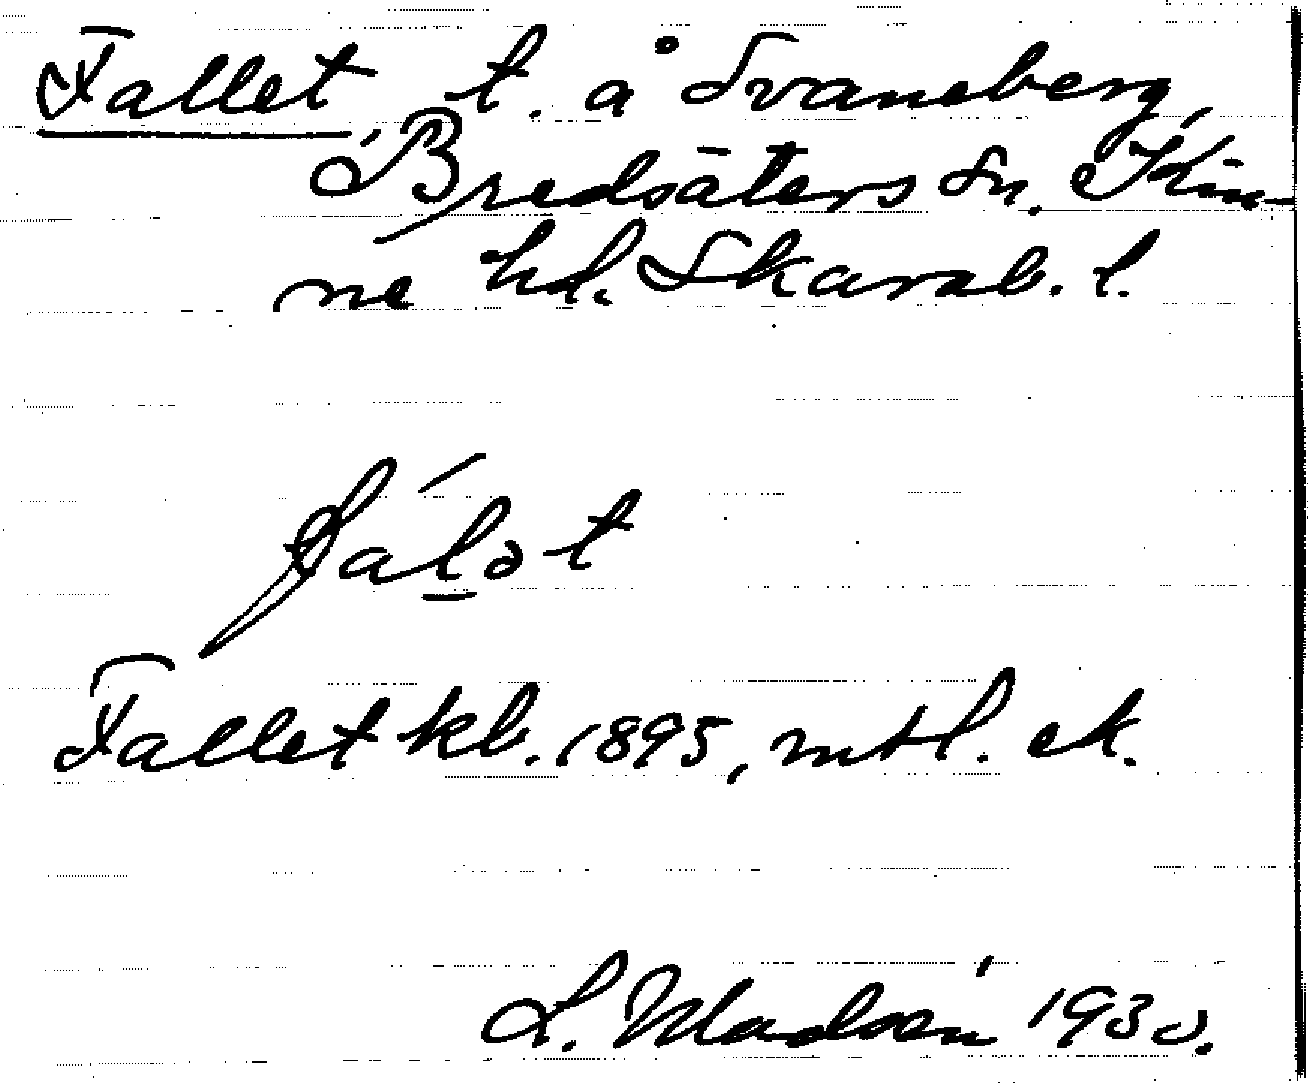 Fallet t. å Svaneberg
Bredsäters sn. Kin-
ne hd. Skarab. l.
fálət
Fallet kb. 1895, mtl. ek.
L. Modéen 1930.